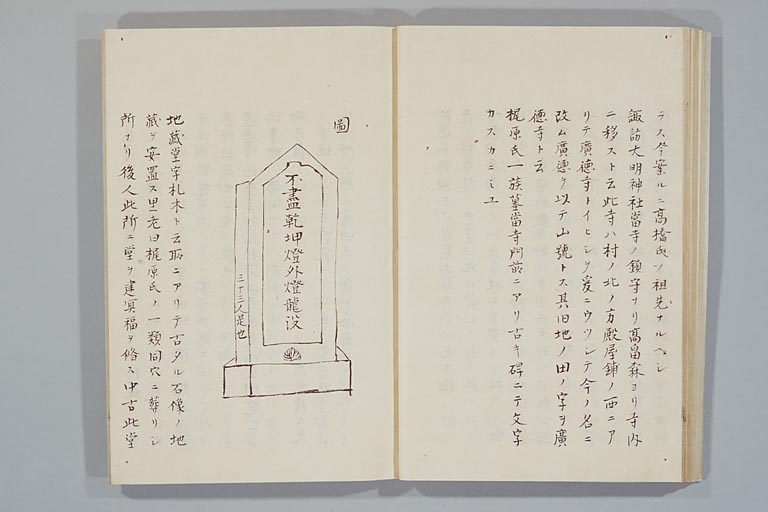 ラス今案ルニ高橋氏ノ祖先ナルヘシ
諏訪大明神社當寺ノ鎮守ナリ高畠森ヨリ寺内
ニ移スト云此寺ハ村ノ北ノ方殿屋鋪ノ西ニア
リテ廣徳寺トイヒシヲ爰ニウツシテ今ノ名ニ
改ム廣徳ヲ以テ山號トス其旧地ノ田ノ字ヲ廣
徳寺ト云
梶原氏一族墓當寺門前ニアリ古キ碑ニテ文字
カスカニミユ
圖
不盡乾坤燈外燈龍没
三十三人是也
地藏堂字札木ト云所ニアリテ古タル石像ノ地
藏ヲ安置ス里老曰梶原氏ノ一類同穴ニ葬リシ
所ナリ後人此所ニ堂ヲ建冥福ヲ脩ス中古此堂